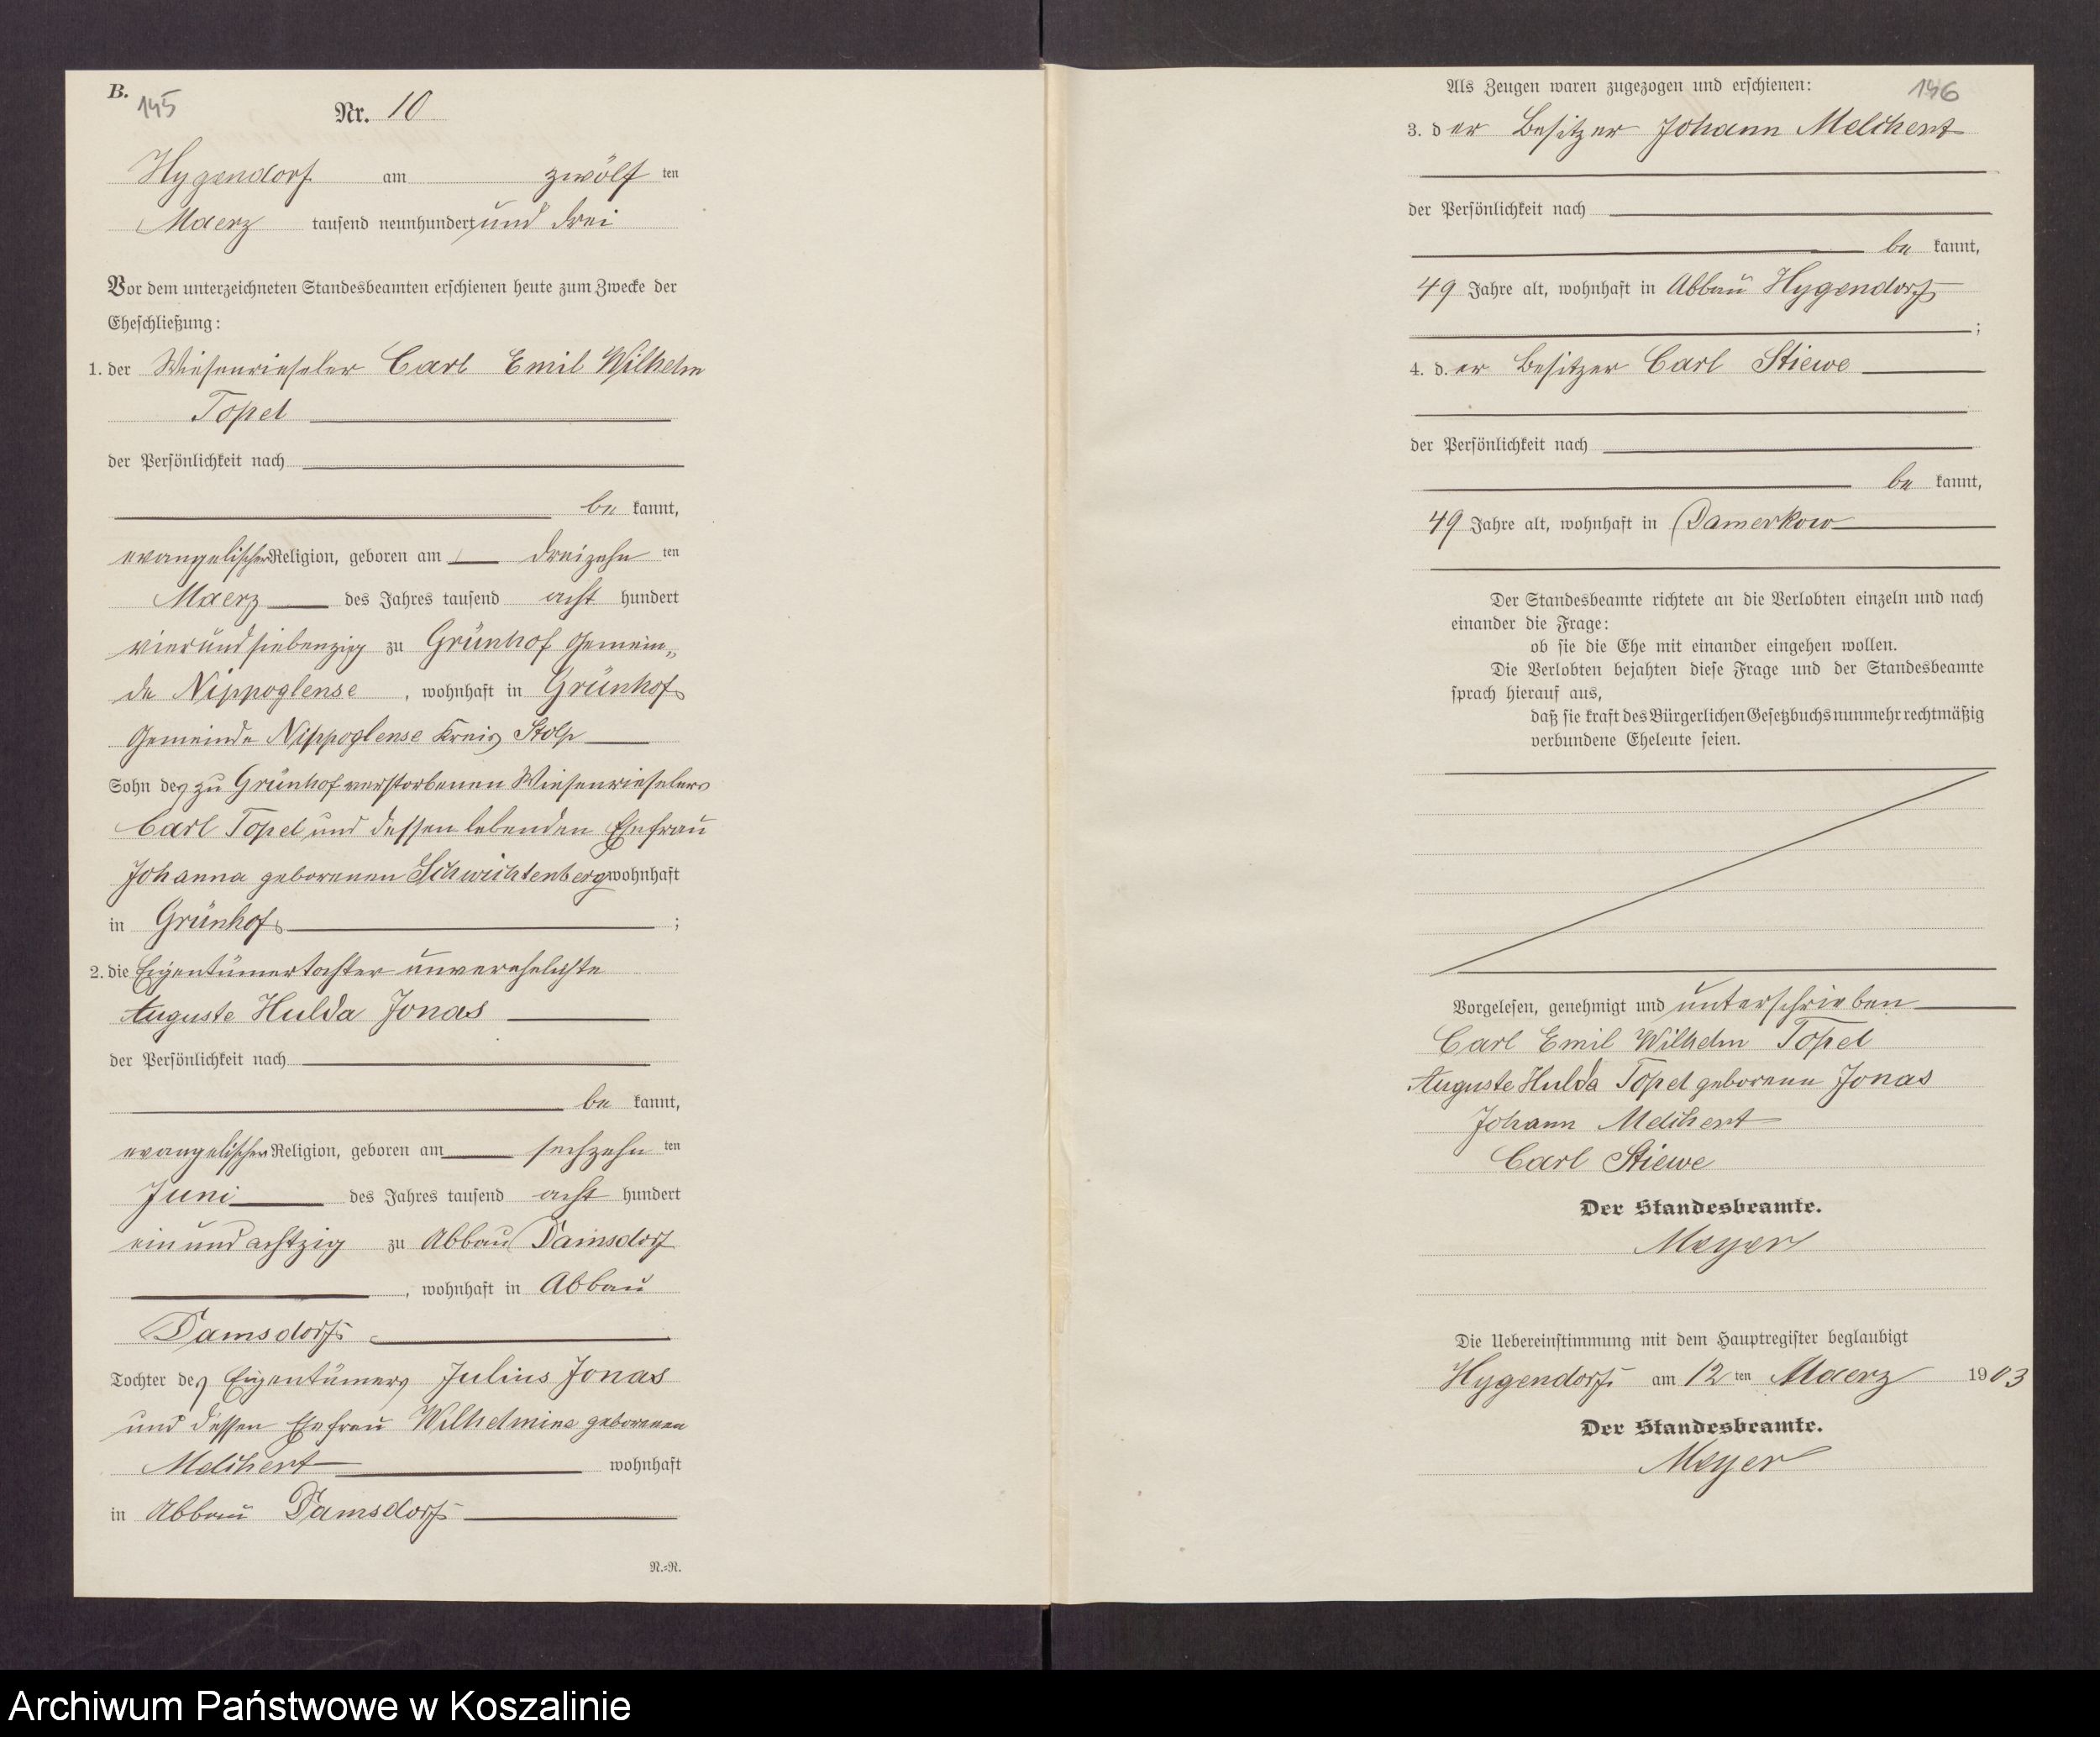 B.
145
Nr. 10
Hygendorf am zwölf ten
Maerz tausend neunhundert und drei
Vor dem unterzeichneten Standesbeamten erschienen heute zum Zwecke der
Eheschließung:
1. der Wiesenrieseler Carl Emil Wilhelm
Topel
der Persönlichkeit nach
be kannt,
evangelischer Religion, geboren am dreizehn ten
Maerz des Jahres tausend acht hundert
vierundsiebenzig zu Grünhof Gemein„
de Nippoglense, wohnhaft in Grünhof
Gemeinde Nippoglense Kreis Stolp
Sohn des zu Grünhof verstorbenen Wiesenrieselers
Carl Topel und dessen lebenden Ehefrau
Johanna geborenen Schwichtenberg wohnhaft
in Grünhof ;
2. die Eigentümertochter unverehelichte
Auguste Hulda Jonas
der Persönlichkeit nach
be kannt,
evangelischer Religion, geboren am sechzehn ten
Juni des Jahres tausend acht hundert
ein und achtzig zu Abbau Damsdorf
, wohnhaft in Abbau
Damsdorf
Tochter des Eigentümers Julius Jonas
und dessen Ehefrau Wilhelmine geborenen
Melchert wohnhaft
in Abbau Damsdorf
N.=R.
Als Zeugen waren zugezogen und erschienen:
146
3. der Besitzer Johann Melchert
der Persönlichkeit nach
be kannt,
49 Jahre alt, wohnhaft in Abbau Hygendorf
;
4. d.er Besitzer Carl Stiewe
der Persönlichkeit nach
be kannt,
49 Jahre alt, wohnhaft in Damerkow
Der Standesbeamte richtete an die Verlobten einzeln und nach
einander die Frage:
ob sie die Ehe mit einander eingehen wollen.
Die Verlobten bejahten diese Frage und der Standesbeamte
sprach hierauf aus,
daß sie kraft des Bürgerlichen Gesetzbuchs nunmehr rechtmäßig
verbundene Eheleute seien.
Vorgelesen, genehmigt und unterschrieben
Carl Emil Wilhelm Topel
Auguste Hulda Topel geborene Jonas
Johann Melchert
Carl Stiewe
Der Standesbeamte.
Meyer
Die Uebereinstimmung mit dem Hauptregister beglaubigt
Hygendorf am 12 ten Maerz 1903
Der Standesbeamte.
Meyer
Archiwum Państwowe w Koszalinie